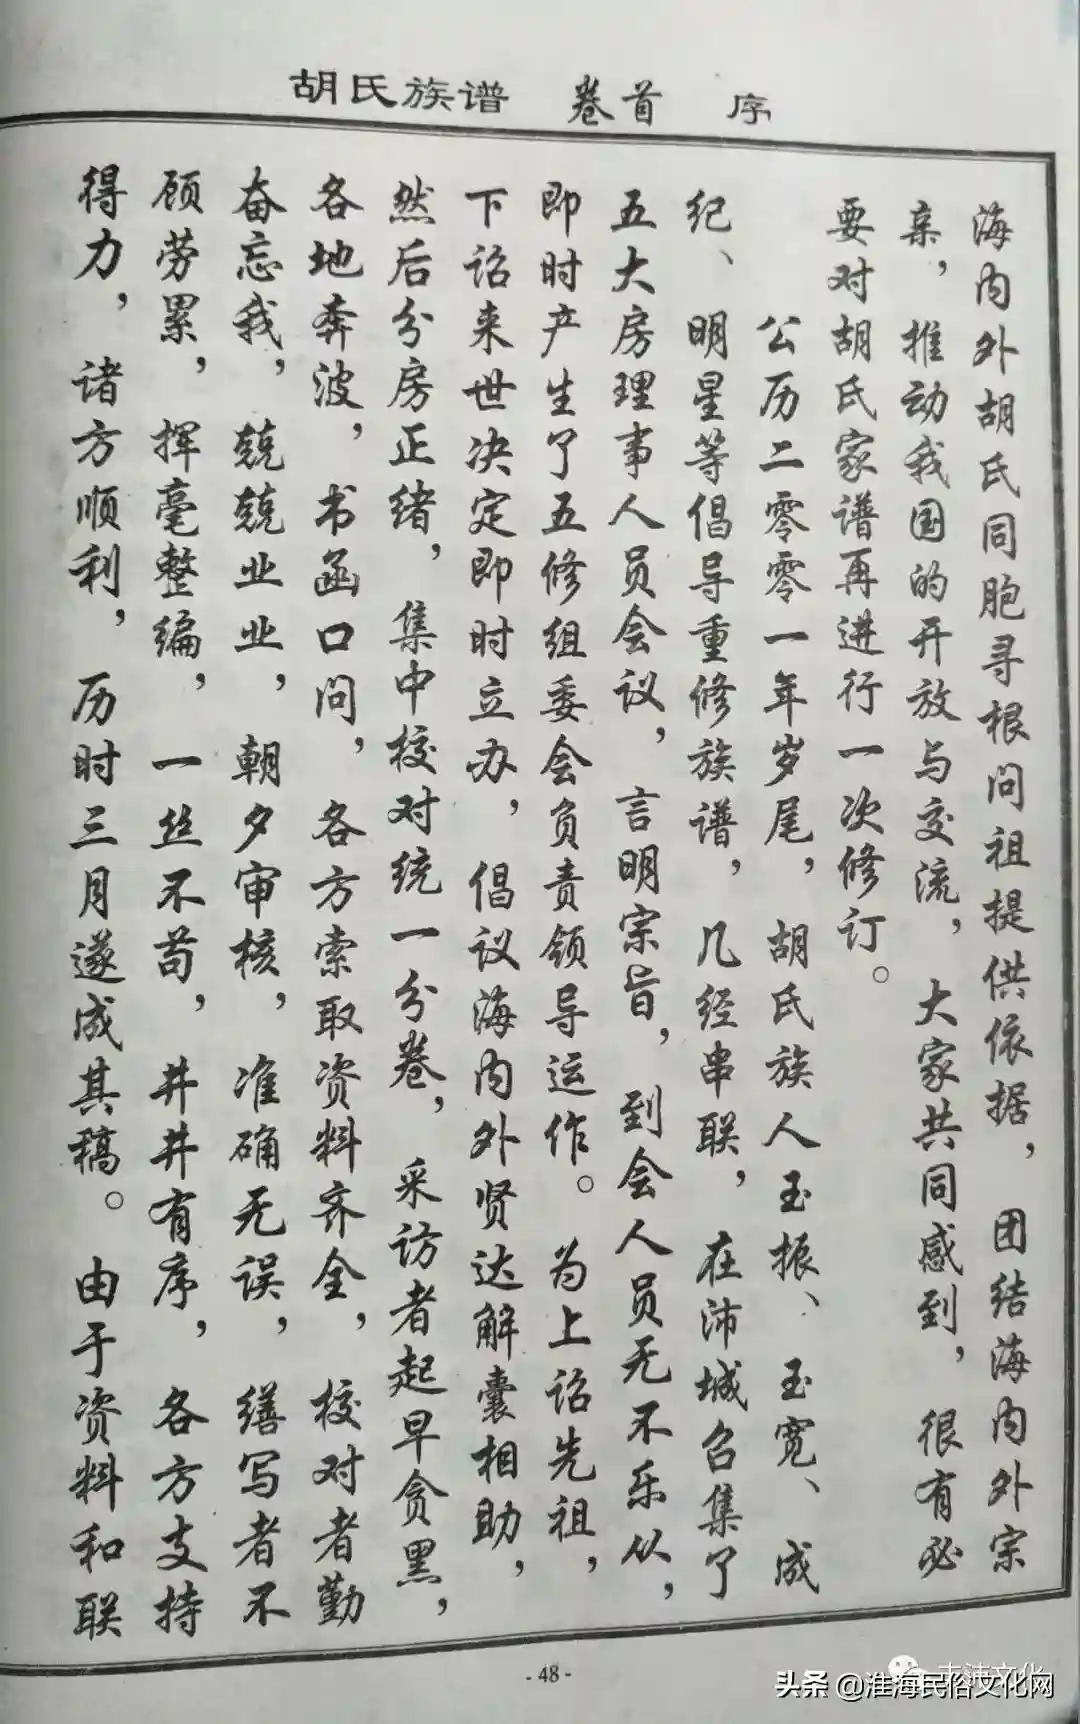 胡氏族谱 卷首 序
海内外胡氏同胞寻根问祖提供依据，团结海内外宗
亲，推动我国的开放与交流，大家共同感到，很有必
要对胡氏家谱再进行一次修订。
公历二零零一年岁尾，胡氏族人玉振、玉宽、成
纪、明星等倡导重修族谱，几经串联，在沛城召集了
五大房理事人员会议，言明宗旨，到会人员无不乐从，
即时产生了五修组委会负责领导运作。为上诏先祖，
下诏来世决定即时立办，倡议海内外贤达解囊相助，
然后分房正绪，集中校对统一分卷，采访者起早贪黑，
各地奔波，书函口问，各方索取资料齐全，校对者勤
奋忘我，兢兢业业，朝夕审核，准确无误，缮写者不
顾劳累，挥毫整编，一丝不苟，井井有序，各方支持
得力，诸方顺利，历时三月遂成其稿。由于资料和联
- 48 -
头条 @淮海民俗文化网